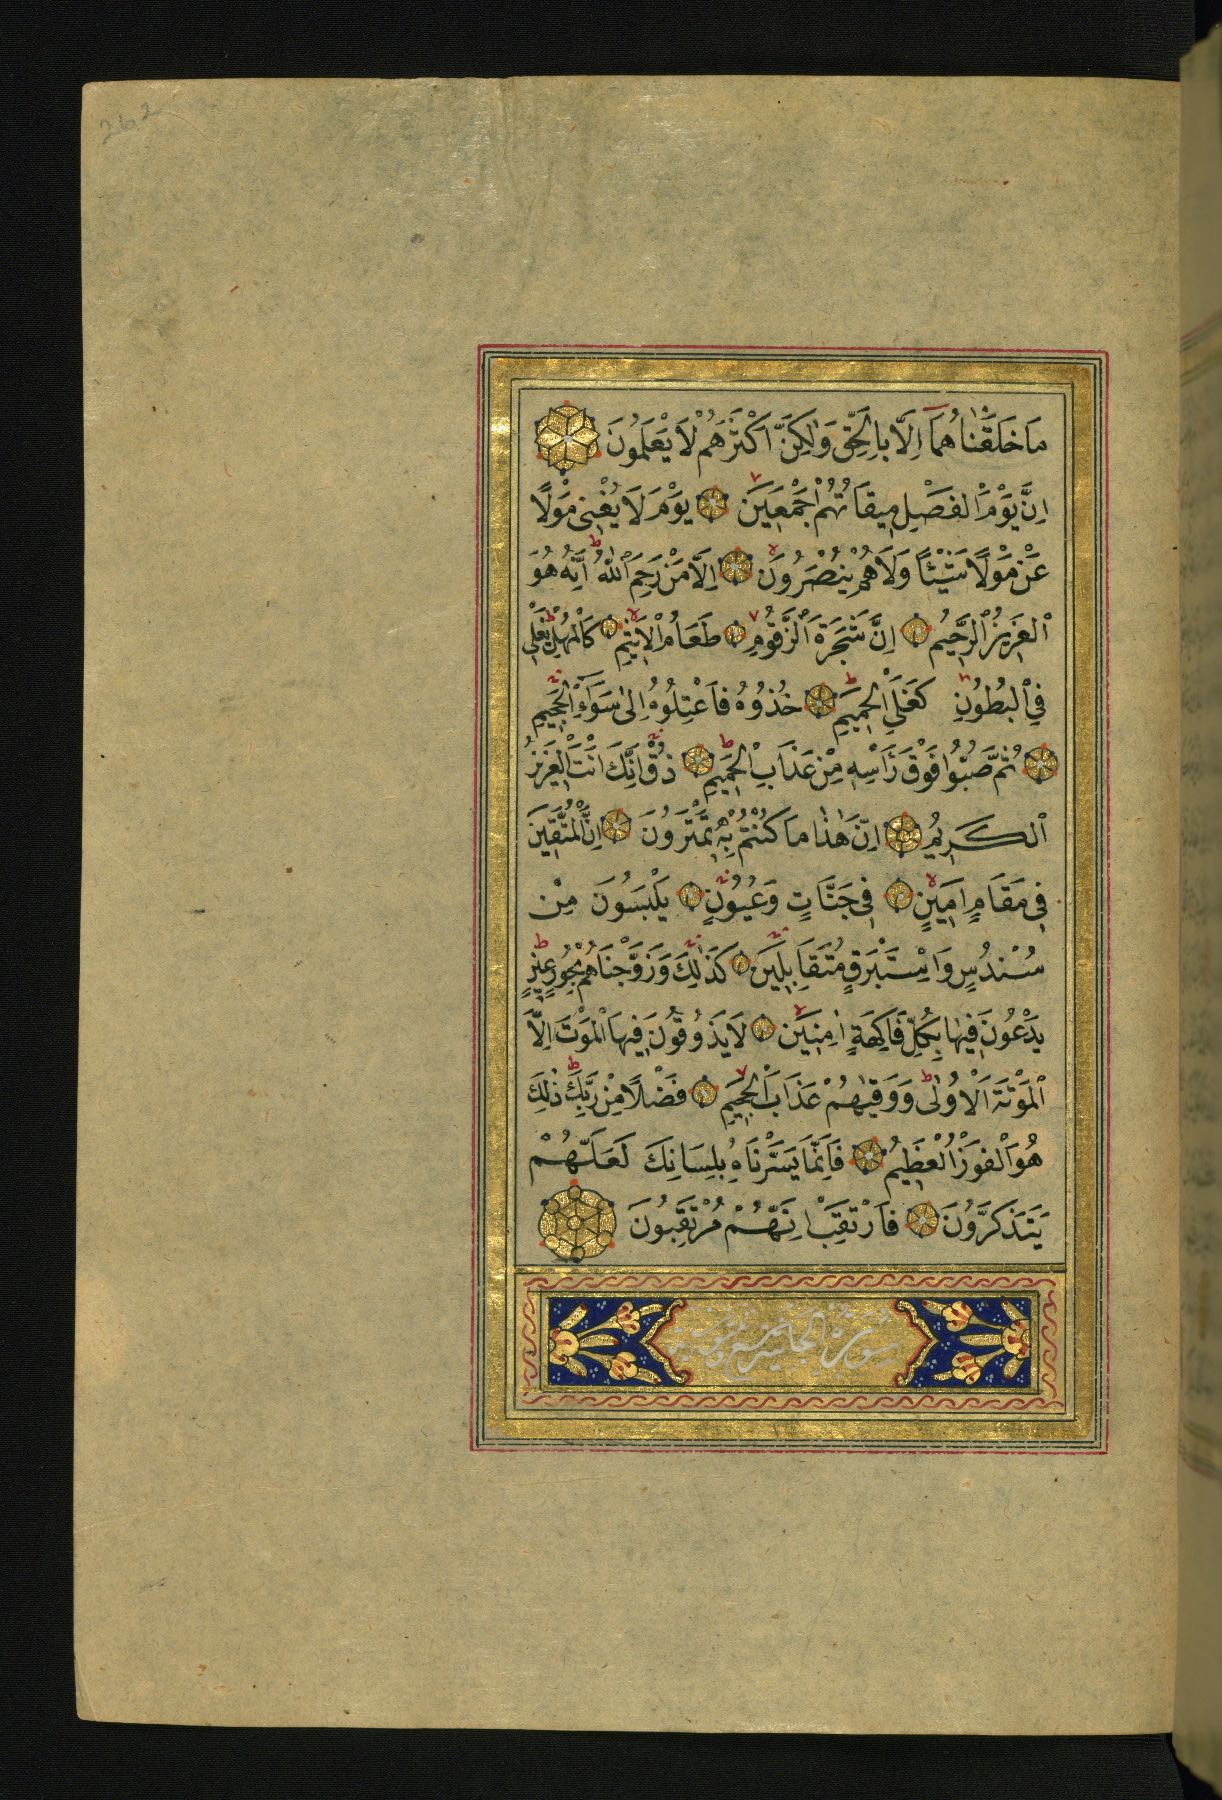 262
مَا خَلَقْنَاهُمَا اِلَّا بِالْحَقِّ وَلٰكِنَّ اَكْثَرَهُمْ لَا يَعْلَمُونَ
اِنَّ يَوْمَ الْفَصْلِ مِيقَاتُهُمْ اَجْمَعِينَ يَوْمَ لَا يُغْنِى مَوْلًا
عَنْ مَوْلًا شَيْئًا وَلَا هُمْ يُنْصَرُونَ اِلَّا مَنْ رَحِمَ اللّٰهُ اِنَّهُ هُوَ
الْعَزِيزُ الرَّحِيمُ اِنَّ شَجَرَةَ الزَّقُّومِ طَعَامُ الْاَثِيمِ كَالْمُهْلِ يَغْلِى
فِى الْبُطُونِ كَغَلْىِ الْحَمِيمِ خُذُوهُ فَاعْتِلُوهُ اِلٰى سَوَآءِ الْجَحِيمِ
ثُمَّ صُبُّوا فَوْقَ رَاْسِهِ مِنْ عَذَابِ الْحَمِيمِ ذُقْ اِنَّكَ اَنْتَ الْعَزِيزُ
الْكَرِيمُ اِنَّ هٰذَا مَا كُنْتُمْ بِهِ تَمْتَرُونَ اِنَّ الْمُتَّقِينَ
فِى مَقَامٍ اَمِينٍ فِى جَنَّاتٍ وَعُيُونٍ يَلْبَسُونَ مِنْ
سُنْدُسٍ وَاِسْتَبْرَقٍ مُتَقَابِلِينَ كَذٰلِكَ وَزَوَّجْنَاهُمْ بِحُورٍ عِينٍ
يَدْعُونَ فِيهَا بِكُلِّ فَاكِهَةٍ اٰمِنِينَ لَا يَذُوقُونَ فِيهَا الْمَوْتَ اِلَّا
الْمَوْتَةَ الْاُولٰى وَوَقٰيهُمْ عَذَابَ الْجَحِيمِ فَضْلًا مِنْ رَبِّكَ ذٰلِكَ
هُوَ الْفَوْزُ الْعَظِيمُ فَاِنَّمَا يَسَّرْنَاهُ بِلِسَانِكَ لَعَلَّهُمْ
يَتَذَكَّرُونَ فَارْتَقِبْ اِنَّهُمْ مُرْتَقِبُونَ
سورة الجاثية